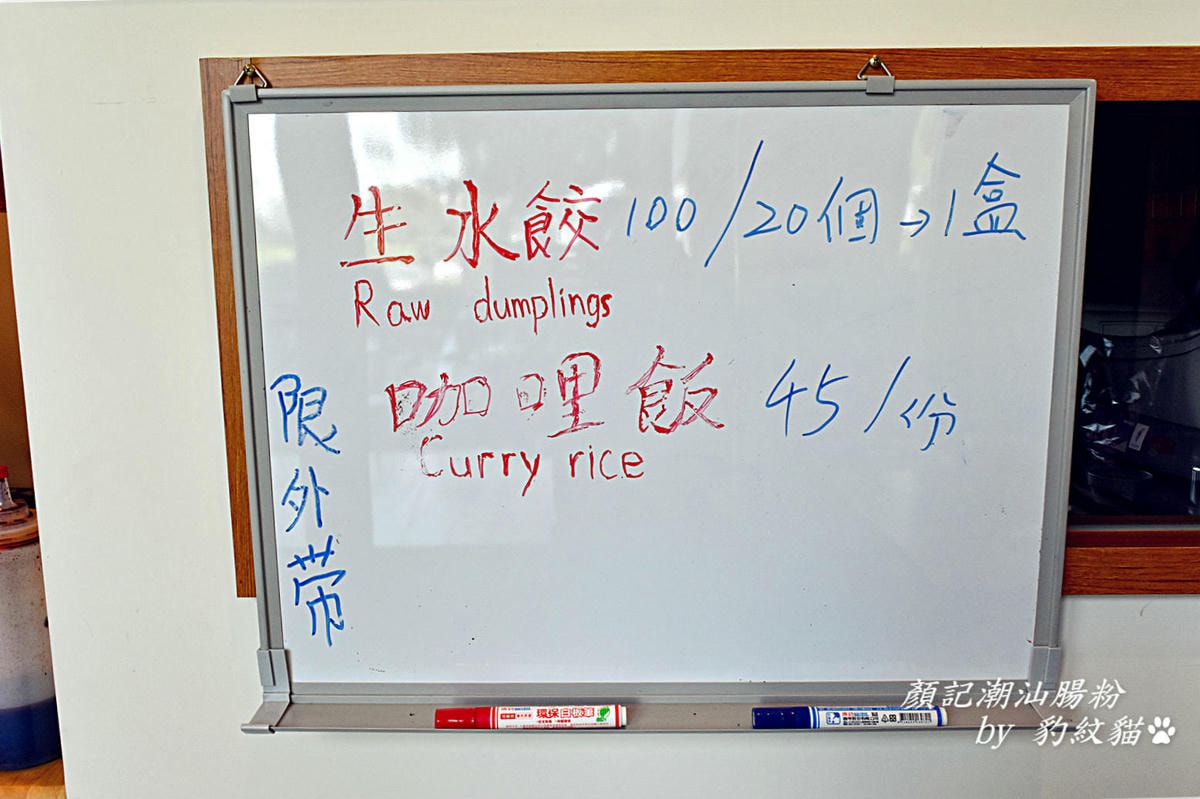 生水餃 100/20個→1盒
Raw dumplings
咖哩飯 45/份
Curry rice
限外帶
環保白板筆
顏記潮汕腸粉
by 豹紋貓